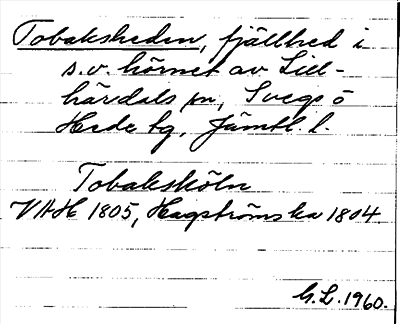 Tobaksheden, fjällhed i
s.v. hörnet av Lill-
härdals sn, Svegs o
Hede tg, Jämtl. l.
Tobaksköln
VAH 1805, Hagströms ka 1804.
G.L. 1960.